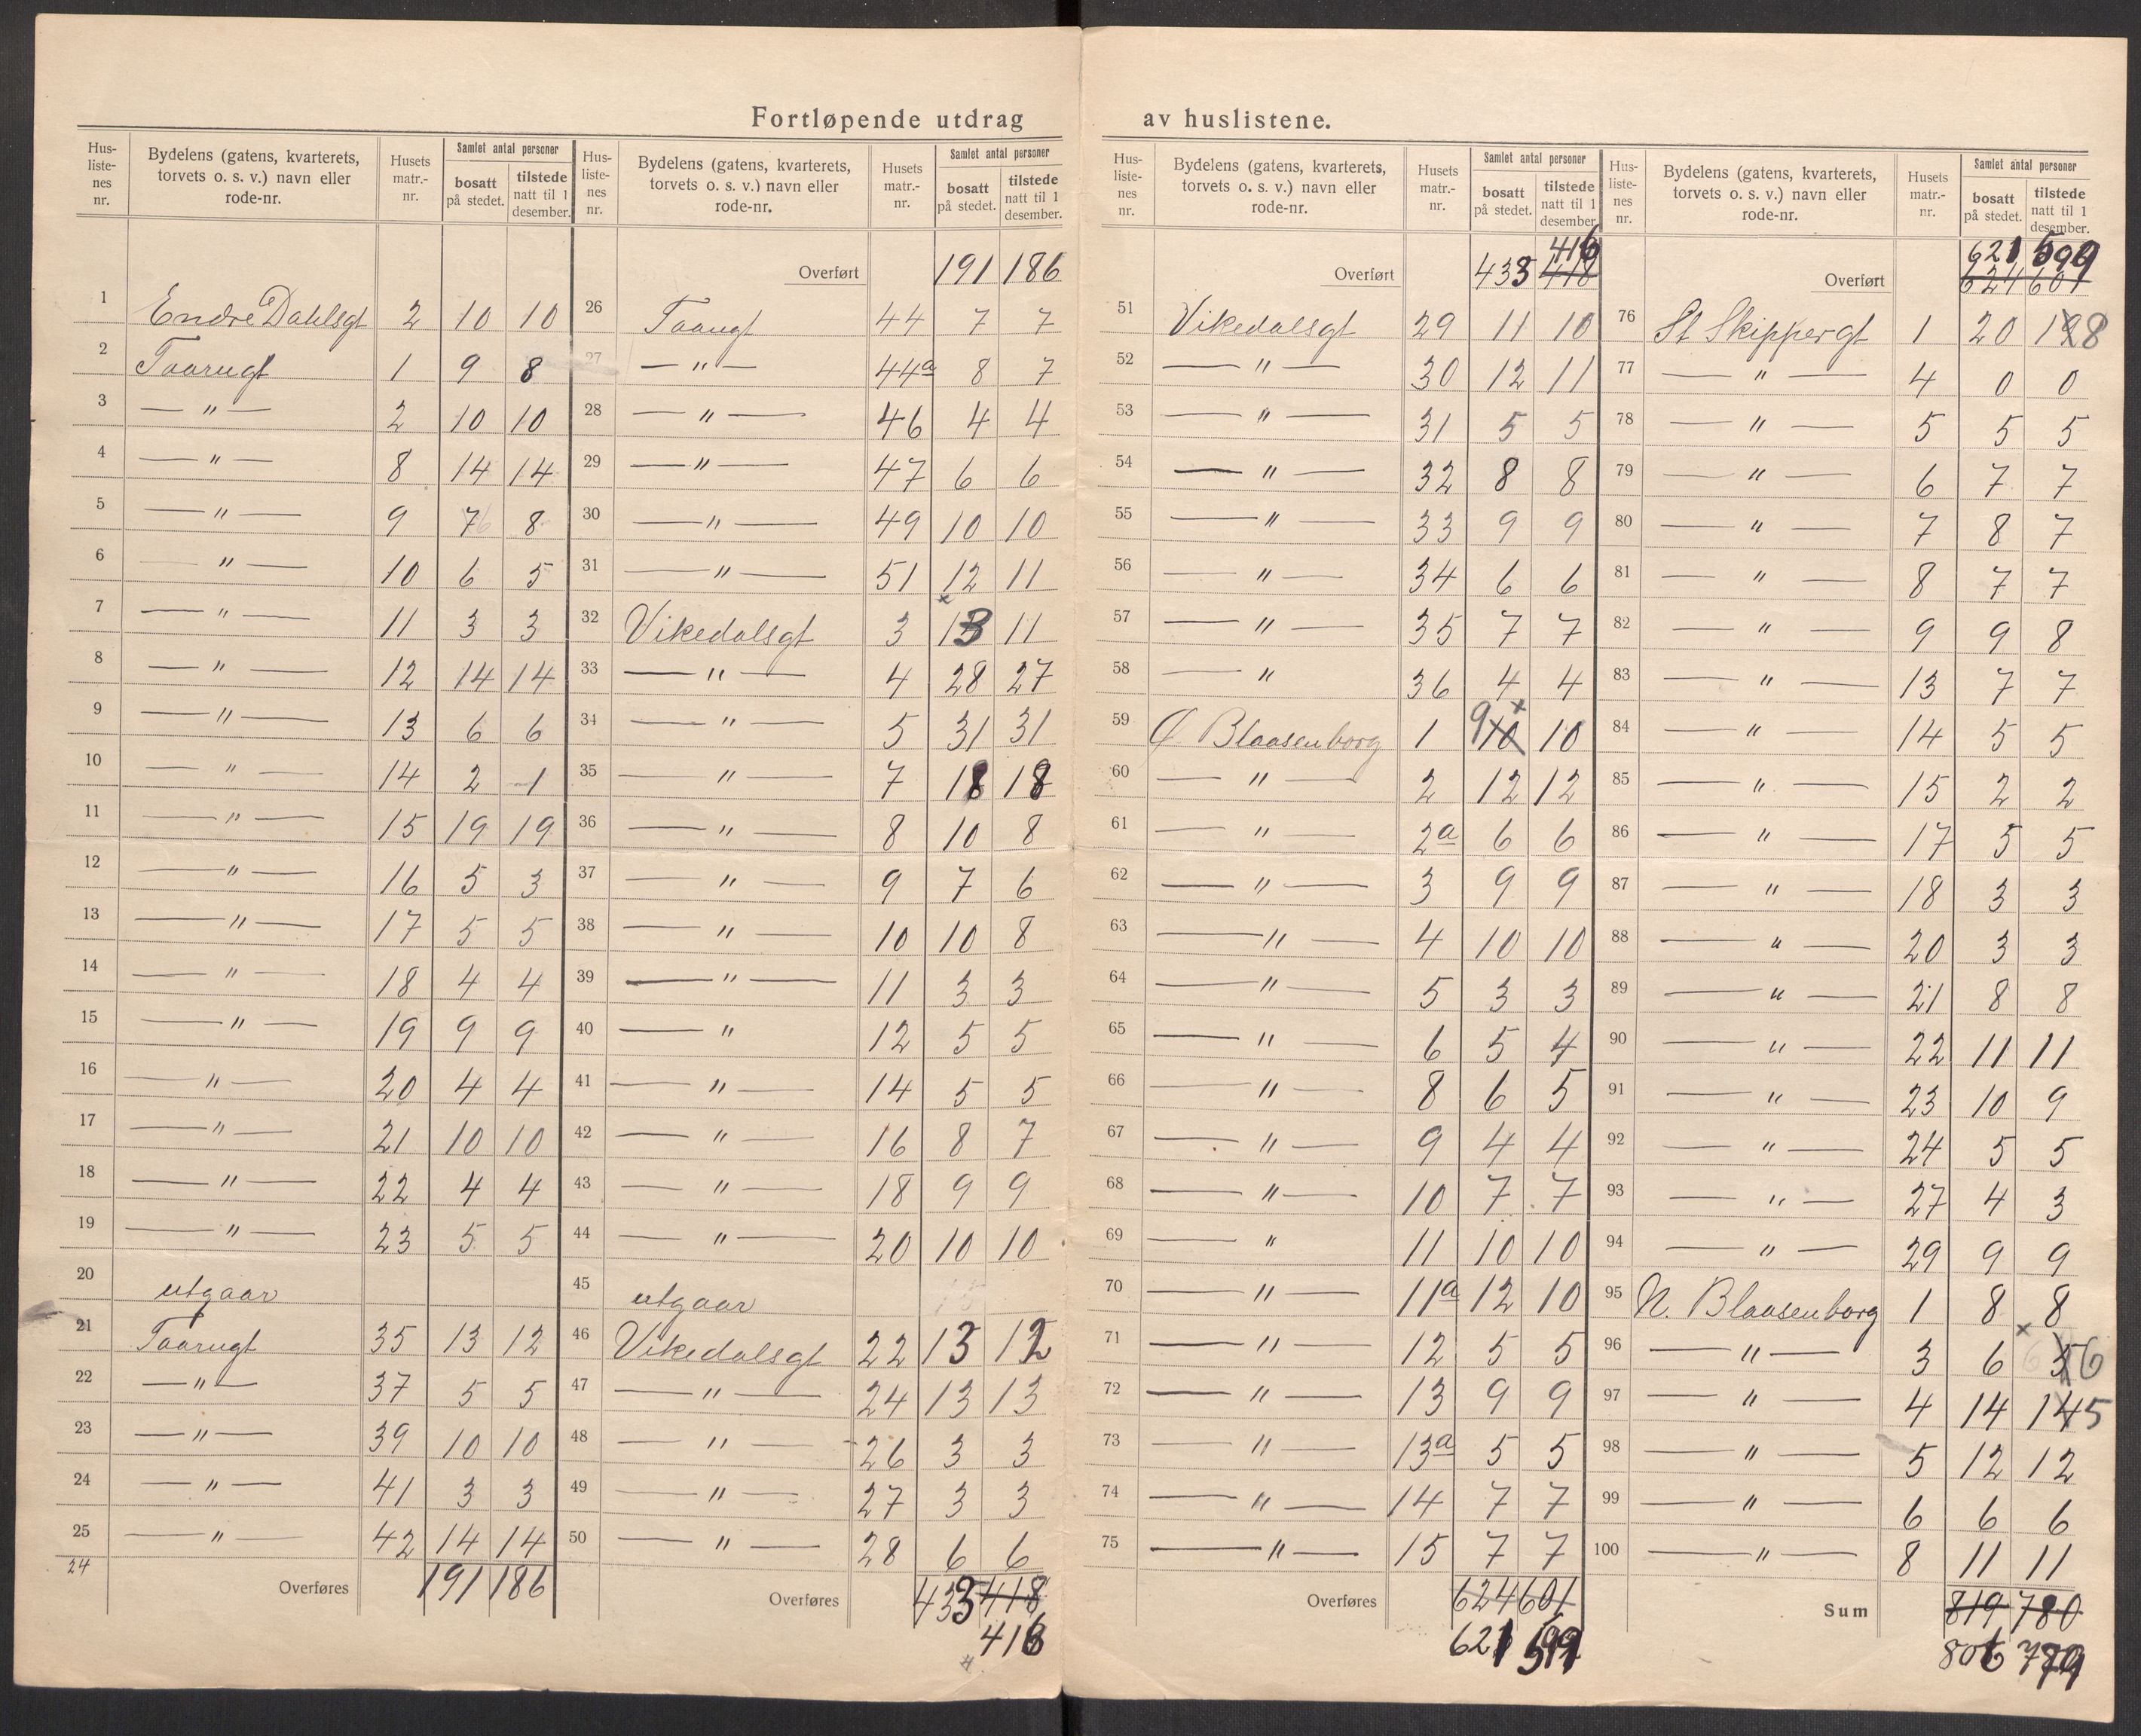 Fortløpende utdrag av huslistene.
Hus-listenes nr. | Bydelens (gatens, kvarterets, torvets o. s. v.) navn eller rode-nr. | Husets matr.-nr. | Samlet antal personer bosatt på stedet. | tilstede natt til 1 desember.
1 Endre Dahlsgt 2 10 10
2 Taarugt 1 9 8
3 — " — 2 10 10
4 — " — 8 14 14
5 — " — 9 7 8
6 — " — 10 6 5
7 — " — 11 3 3
8 — " — 12 14 14
9 — " — 13 6 6
10 — " — 14 2 1
11 — " — 15 19 19
12 — " — 16 5 3
13 — " — 17 5 5
14 — " — 18 4 4
15 — " — 19 9 9
16 — " — 20 4 4
17 — " — 21 10 10
18 — " — 22 4 4
19 — " — 23 5 5
20 utgaar
21 Taarugt 35 13 12
22 — " — 37 5 5
23 — " — 39 10 10
24 — " — 41 3 3
25 — " — 42 14 14
24 Overføres 191 186
Hus-listenes nr. | Bydelens (gatens, kvarterets, torvets o. s. v.) navn eller rode-nr. | Husets matr.-nr. | Samlet antal personer bosatt på stedet. | tilstede natt til 1 desember.
Overført 191 186
26 Taarugt 44 7 7
27 — " — 44a 8 7
28 — " — 46 4 4
29 — " — 47 6 6
30 — " — 49 10 10
31 — " — 51 12 11
32 Vikedalsgt 3 13 11
33 — " — 4 28 27
34 — " — 5 31 31
35 — " — 7 18 18
36 — " — 8 10 8
37 — " — 9 7 6
38 — " — 10 10 8
39 — " — 11 3 3
40 — " 12 5 5
41 — " — 14 5 5
42 — " — 16 8 7
43 — " — 18 9 9
44 — " — 20 10 10
45 utgaar
46 Vikedalsgt 22 13 12
47 — " — 24 13 13
48 — " — 26 3 3
49 — " — 27 3 3
50 — " — 28 6 6
Overføres 433 418
416
Hus-listenes nr. | Bydelens (gatens, kvarterets, torvets o. s. v.) navn eller rode-nr. | Husets matr.-nr. | Samlet antal personer bosatt på stedet. | tilstede natt til 1 desember.
416
Overført 433 418
51 Vikedalsgt 29 11 10
52 — " — 30 12 11
53 — " — 31 5 5
54 — " — 32 8 8
55 — " — 33 9 9
56 — " — 34 6 6
57 — " — 35 7 7
58 — " 36 4 4
59 Ø. Blaasenborg 1 9 10 10
60 — " — 2 12 12
61 — " — 2a 6 6
62 — " — 3 9 9
63 — " — 4 10 10
64 — " — 5 3 3
65 — " — 6 5 4
66 — " — 8 6 5
67 — " — 9 4 4
68 — " — 10 7 7
69 — " 11 10 10
70 — " — 11a 12 10
71 — " — 12 5 5
72 — " — 13 9 9
73 — " — 13a 5 5
74 — " — 14 7 7
75 — " — 15 7 7
Overføres 624 601
621 599
Hus-listenes nr. | Bydelens (gatens, kvarterets, torvets o. s. v.) navn eller rode-nr. | Husets matr.-nr. | Samlet antal personer bosatt på stedet. | tilstede natt til 1 desember.
621 599
Overført 624 601
76 St Skippergt 1 20 198
77 — " — 4 0 0
78 — " — 5 5 5
79 — " — 6 7 7
80 — " — 7 8 7
81 — " — 8 7 7
82 — " — 9 9 8
83 — " — 13 7 7
84 — " — 14 5 5
85 — " — 15 2 2
86 — " — 17 5 5
87 — " — 18 3 3
88 — " — 20 3 3
89 — " — 21 8 8
90 — " — 22 11 11
91 — " — 23 10 9
92 — " — 24 5 5
93 — " — 27 4 3
94 — " — 29 9 9
95 N. Blaasenborg 1 8 8
96 — " — 3 6 3 6
97 — " — 4 14 145
98 — " — 5 12 12
99 — " — 6 6 6
100 — " — 8 11 11
Sum 819 780
806 779